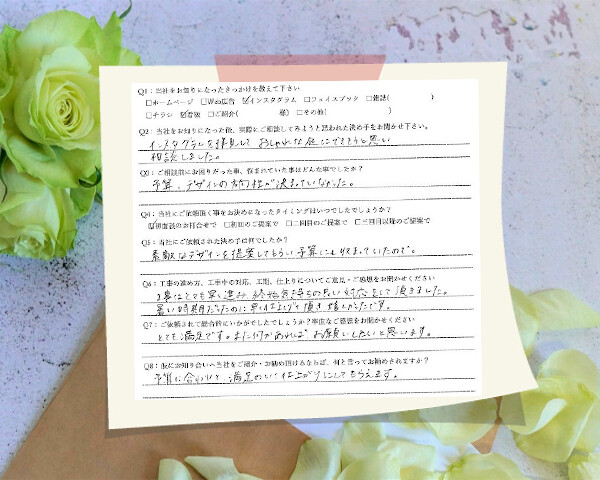 Q1：当社をお知りになったきっかけを教えて下さい
□ホームページ □Web広告 ☑インスタグラム □フェイスブック □雑誌( )
□チラシ ☑看板 □ご紹介( 様) □その他( )
Q2：当社をお知りになった後、実際にご相談してみようと思われた決め手をお聞かせ下さい。
インスタグラムを拝見して おしゃれな庭にできそうと思い
相談しました。
Q3：ご相談前にお困りだった事、悩まれていた事はどんな事でしたか？
予算、デザインの方向性が決まっていなかった。
Q4：当社にご依頼頂く事をお決めになったタイミングはいつでしたでしょうか？
☑初回面談のお打合せで □初回のご提案で □二回目のご提案で □三回目以降のご提案で
Q5：当社にご依頼された決め手は何でしたか？
素敵なデザインを提案してもらい予算にも収まっていたので。
Q6：工事の進め方、工事中の対応、工期、仕上りについてご意見・ご感想をお聞かせください
工事はとても早く進み、終始気持ちの良い対応をして頂きました。
暑い時期だったのに早く仕上げて頂き嬉しかったです。
Q7：ご依頼されて総合的にいかがでしたでしょうか？率直なご感想をお聞かせください
とても満足です。また何かあればお願いしたいと思います。
Q8：仮にお知り合いへ当社をご紹介・お勧め頂けるならば、何と言ってお勧めされますか？
予算に合わせて、満足のいく仕上がりにしてもらえます。